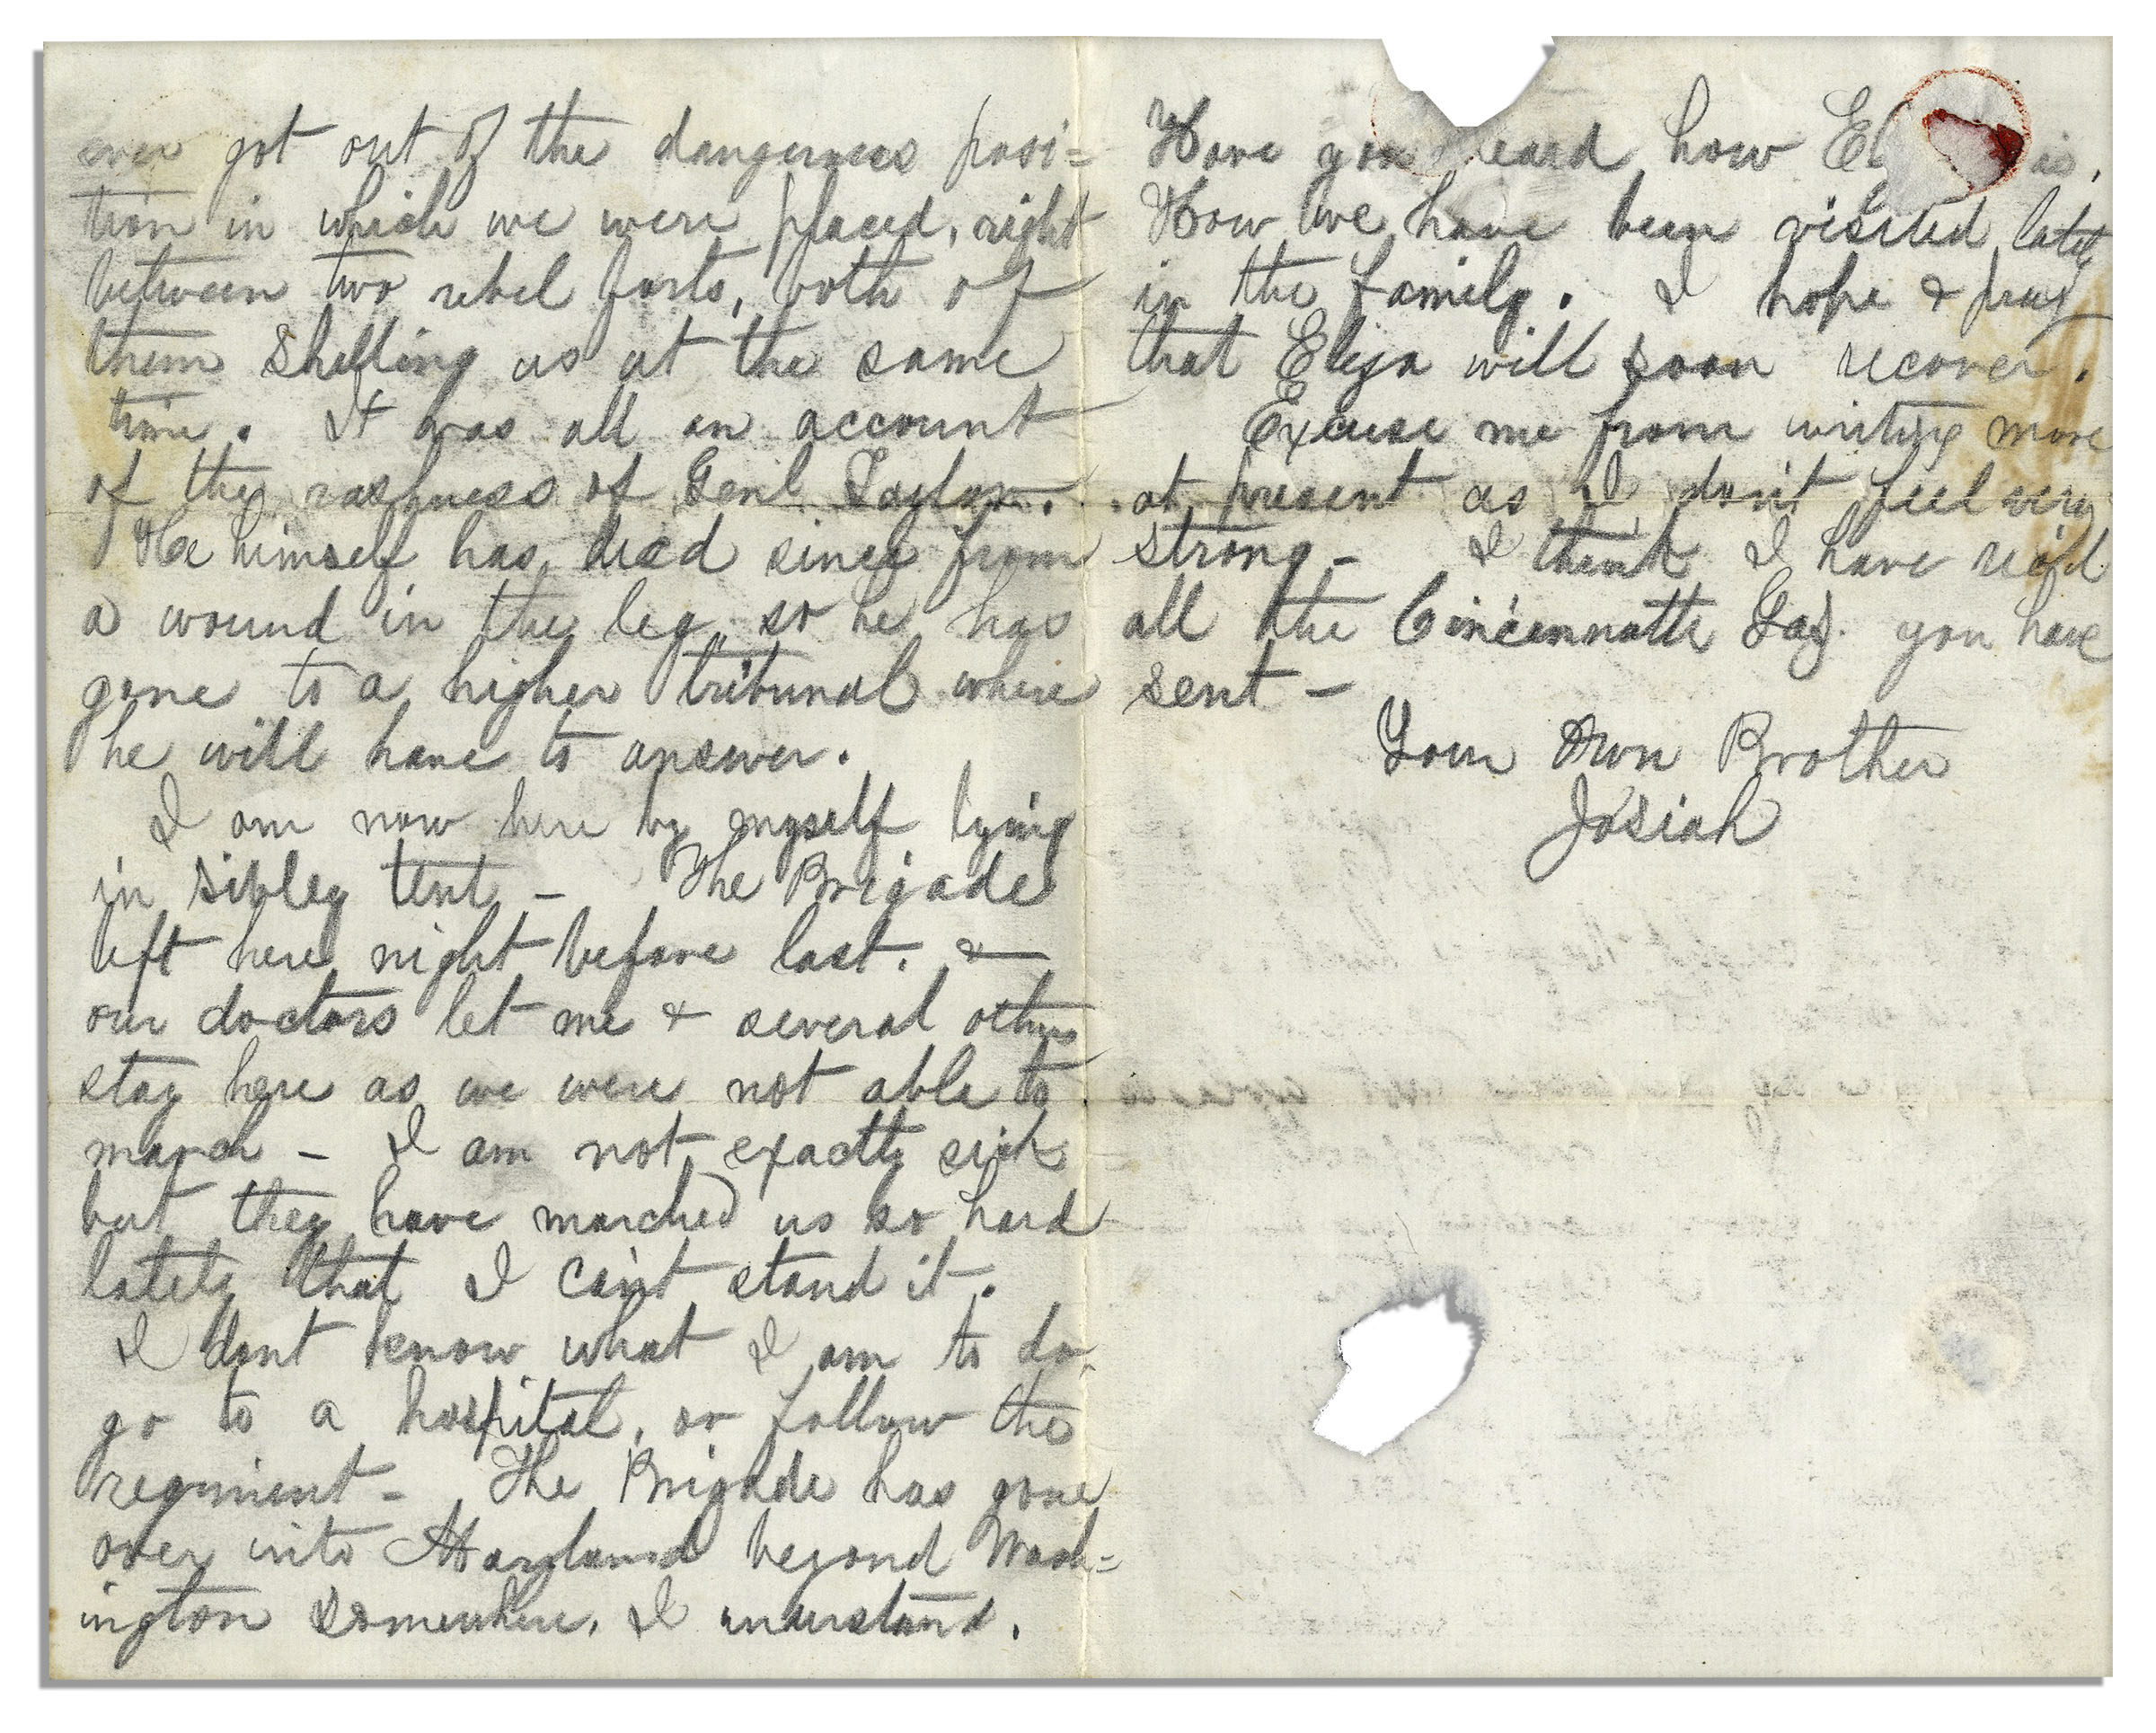 ever got out of the dangerous posi=
tion in which we were placed, right
between two rebel forts, both of
them shelling us at the same
time. It was all on account
of the rashness of Genl. Taylor.
He himself has died since from
a wound in the leg, so he has
gone to a higher tribunal where
he will have to answer.
I am now here by myself lying
in sibley tent – The Brigade
left here night before last. &
our doctors let me & several others
stay here as we were not able to
march – I am not exactly sick
but they have marched us so hard
lately that I can't stand it.
I dont know what I am to do
go to a hospital, or follow the
regiment – The Brigade has gone
over into Maryland beyond Wash=
ington somewhere, I understand.
Have you heard how El is.
How we have been visited lately
in the family. I hope & pray
that Eliza will soon recover.
Excuse me from writing more
at present as I don't feel very
strong – I think I have rec'd
all the Cincinnatti Gaz. you have
sent –
Your Own Brother
Josiah